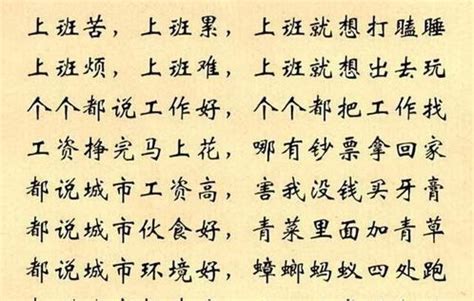 上班苦，上班累，上班就想打瞌睡
上班烦，上班难，上班就想出去玩
个个都说工作好，个个都把工作找
工资挣完马上花，哪有钞票拿回家
都说城市工资高，害我没钱买牙膏
都说城市伙食好，青菜里面加青草
都说城市环境好，蟑螂蚂蚁四处跑